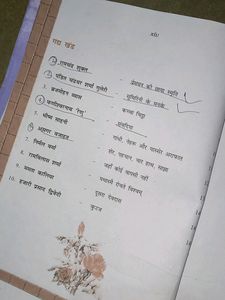 xii/
गद्य खंड
1. रामचंद्र शुक्ल - प्रेमघन की छाया स्मृति
2. पंडित चंद्रधर शर्मा गुलेरी - सुमिरिनी के मनके
3. ब्रजमोहन व्यास - कच्चा चिट्ठा
4. फणीश्वरनाथ 'रेणु' - संवदिया
5. भीष्म साहनी - गांधी, नेहरू और यास्सेर अराफ़ात
6. असगर वजाहत - शेर, पहचान, चार हाथ, साझा
7. निर्मल वर्मा - जहाँ कोई वापसी नहीं
8. रामविलास शर्मा - यथास्मै रोचते विश्वम्
9. ममता कालिया - दूसरा देवदास
10. हजारी प्रसाद द्विवेदी - कुटज